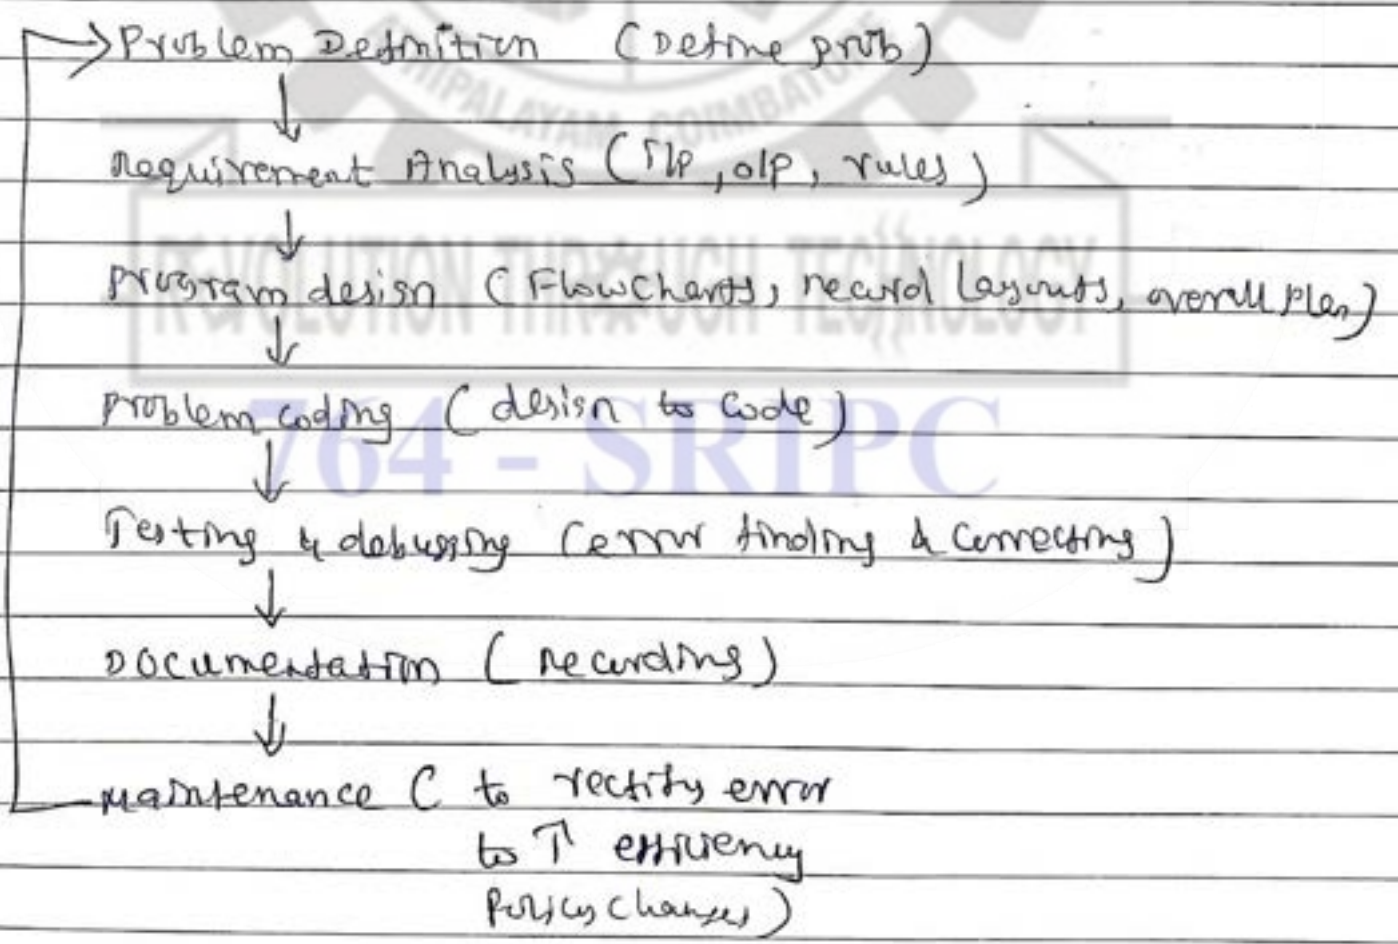 Problem Definition (Define prob)
Requirement Analysis (I/p, o/p, rules)
Program design (Flowcharts, record layouts, overall plan)
Problem coding (design to code)
Testing & debugging (error finding & correcting)
Documentation (recording)
Maintenance ( to rectify error
to ↑ efficiency
Policy changes)
PALAYAM, COIMBATORE
REVOLUTION THROUGH TECHNOLOGY
764 - SRIPC